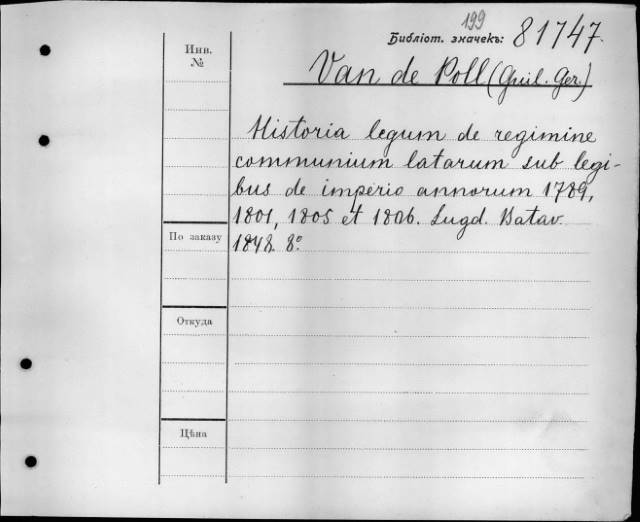 199
Библіот. значекъ: 81747.
Инв.
№
Van de Poll (Guil. Ger.)
Historia legum de regimine
communium latarum sub legi-
bus de imperio annorum 1789,
1801, 1805 et 1806. Lugd. Batav.
1848. 8°
По заказу
Откуда
Цѣна